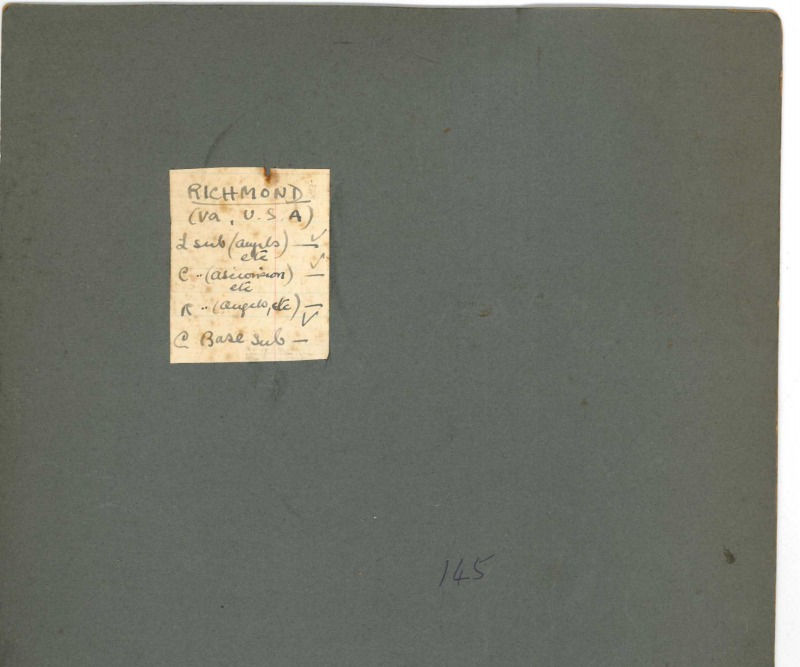 RICHMOND
(Va, U.S.A)
L sub (angels) — ✓
etc
C " (ascension) — ✓
etc
R " (angels, etc) — ✓
C Base sub —
145